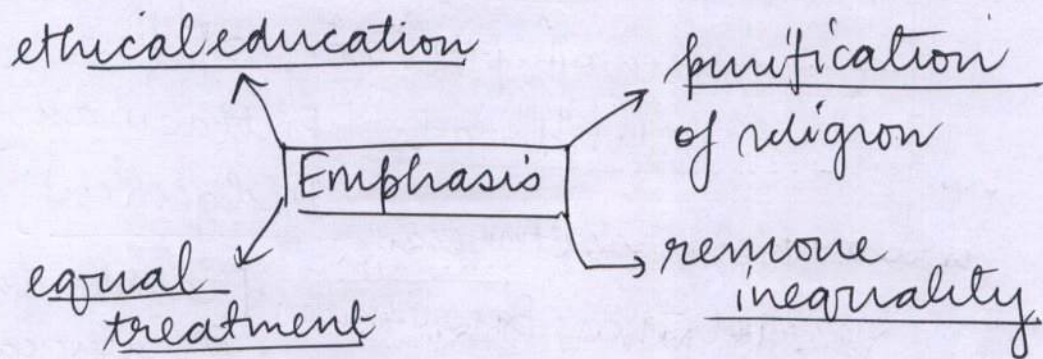 ethical education
purification
of religion
Emphasis
equal
treatment
remove
inequality